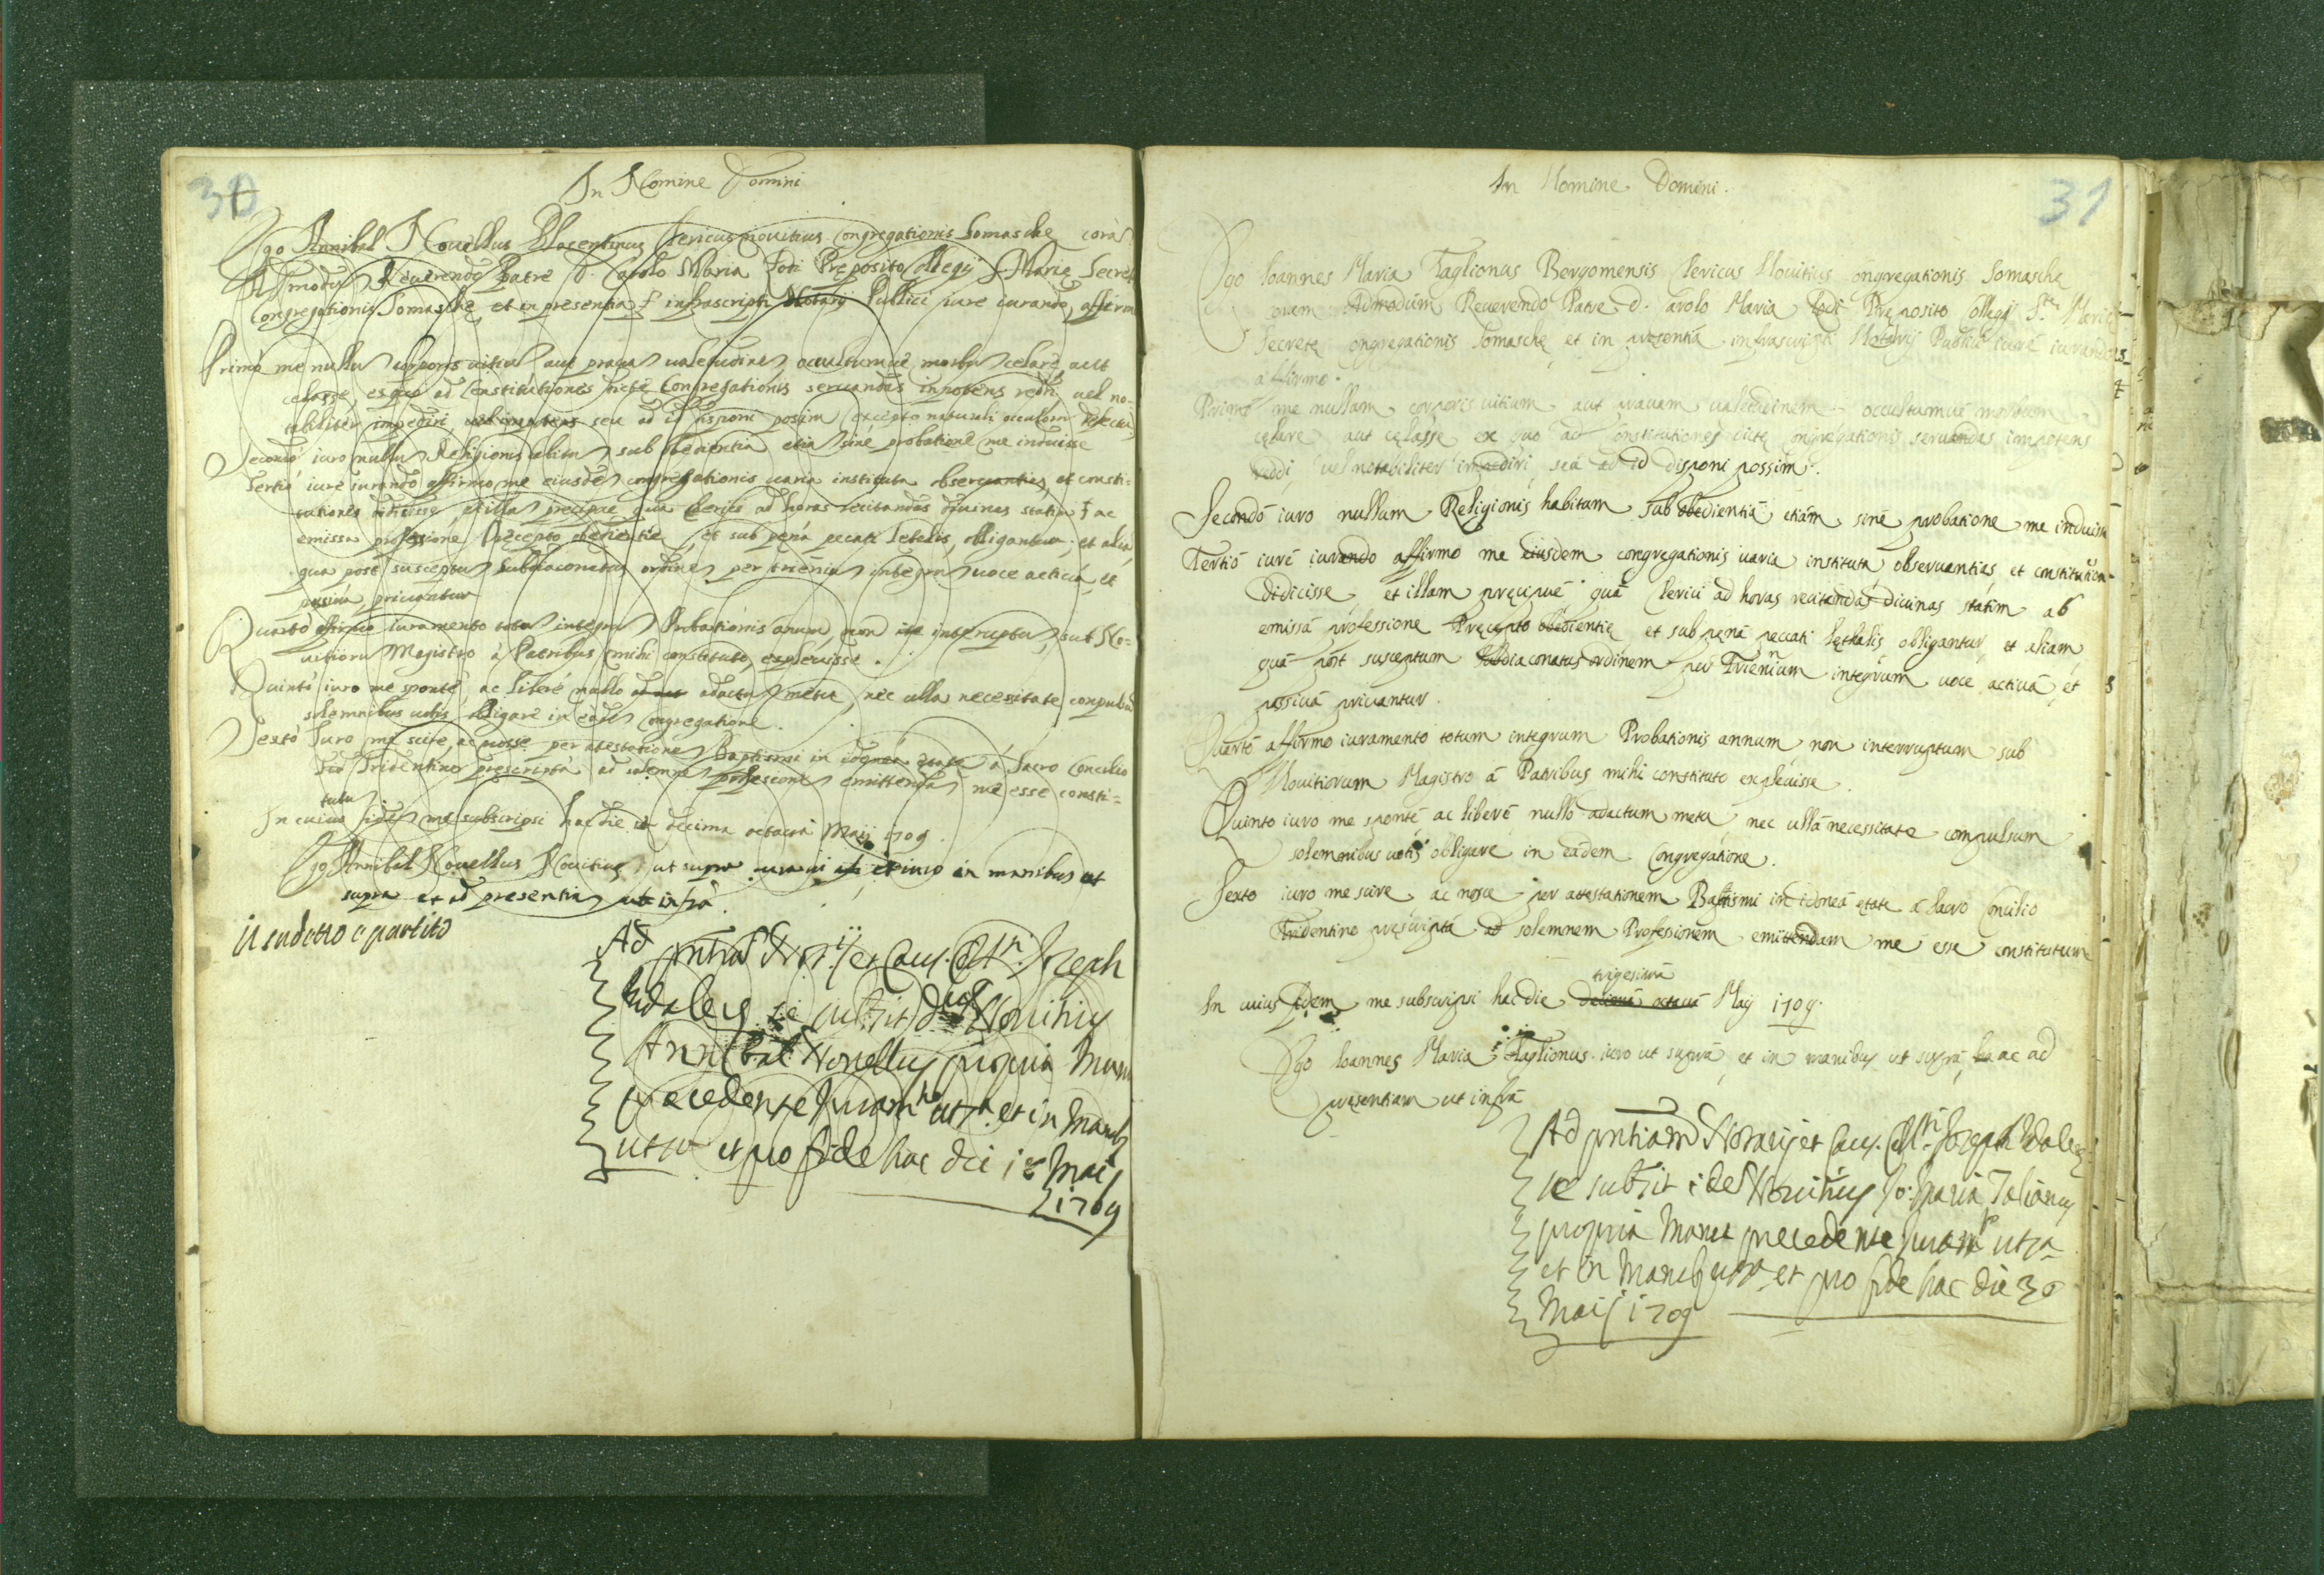 30
In Nomine Domini
Ego Annibal Novellus Placentinus Clericus Novitius Congregationis Somasche corã
Admodũ Reverendo Patre D. Carolo Maria Lodi Preposito Collegij S. Marie Secret
Congregationis Somasche, et in presentia infrascripti Notarij Publici iure iurando, affirm
Primo me nullũ corporis vitiũ aut pravã valetudinẽ, occultumve morbũ celare aut
celasse, ex quo ad Constitutiones dicte Congregationis servandas impotens reddi, vel no-
tabiliter impediri, seu ad id disponi possim excepto naturali oculorum defectu
Secondo iuro nullũ Religionis habitũ sub obedientia etiã sine probatione me induisse
Tertio iure iurando affirmo me eiusdẽ congregationis varia instituta observantias, et consti=
tutiones didicisse, et illã precipue qua Clerici ad horas recitandas divinas statim ac
emissa professione Precepto obedientie, et sub pena pecati letalis, obligantur; et aliã
qua post susceptũ Subdiaconatus ordinẽ per trieniũ integrũ voce activa, et
passiva privantur
Quarto affirmo iuramento totũ integrũ Probationis annũ, non interruptũ, sub No=
vitiorũ Magistro à Patribus mihi constituto explevisse.
Quinto iuro me sponte ac libere nullo adactũ metu, nec ulla necessitate conpulsũ
solemnibus votis obligare in eadẽ Congregatione.
Sexto Iuro me scire, ac nosse per atestationẽ Baptismi in idonea etate à Sacro Concilio
Tridentino prescripta ad solemnẽ professionẽ emittendã me esse consti=
tutũ
In cuius fidẽ me subscripsi hac die decima octava Maij 1709.
Ego Annibal Novellus Novitius ut supra iuravi et iuro in manibus ut
supra et ad presentiã ut infrà.
Il sudetto è partito
Ad pntiã Notij et Caus. Mri. Joseph
Vidaleg se subsit dictus Novitius
Annibal Novellus propria Manu
precedente Juramto ut sa. et in Manib
ut sa et pro fide hac die 18 Maij
1709
31
In Nomine Domini.
Ego Ioannes Maria Taglionus Bergomensis Clericus Novitius Congregationis Somasche
coram Admodum Reverendo Patre D. Carolo Maria Lodi Preposito Collegij Ste. Marie
Secrete Congregationis Somasche et in presentia infrascripti Notarij Publici iure iurando
affirmo.
Primo me nullum corporis vitium aut pravam valetudinem occultumve morbum
celare aut celasse ex quo ad Constitutiones dicte Congregationis servandas impotens
reddi, vel notabiliter impediri, seu ad id disponi possim.
Secondo iuro nullum Religionis habitum sub obedientia etiam sine probatione me induisse
Tertio iure iurando affirmo me eiusdem congregationis varia instituta observantias et constitution-
didicisse et illam precipue qua Clerici ad horas recitandas divinas statim ab
emissa professione Precepto obedientie et sub pena peccati lethalis obligantur, et aliam
qua post susceptum Subdiaconatus ordinem per Trienium integrum voce activa, et
passiva privantur.
Quarto affirmo iuramento totum integrum Probationis annum non interruptum sub
Novitiorum Magistro à Patribus mihi constituto explevisse.
Quinto iuro me sponte ac libere nullo adactum metu nec ulla necessitate compulsum
solemnibus votis obligare in eadem Congregatione.
Sexto iuro me scire ac nosce per attestationem Baptismi in idonea etate à Sacro Concilio
Tridentino prescripta ad solemnem Professionem emittendam me esse constitutum
trigesima
In cuius fidem me subscripsi hac die decima octava Maij 1709.
Ego Ioannes Maria Taglionus iuro ut supra, et in manibus ut supra, ac ad
presentiam ut infra
Ad pntiam Notarij et Caus. Mri. Joseph Vidaleg
se subsit idẽ Novitius Jo: Maria Talionus
propria Manu precedente Juramto ut sa
et in Manib ut sa et pro fide hac die 30
Maij 1709